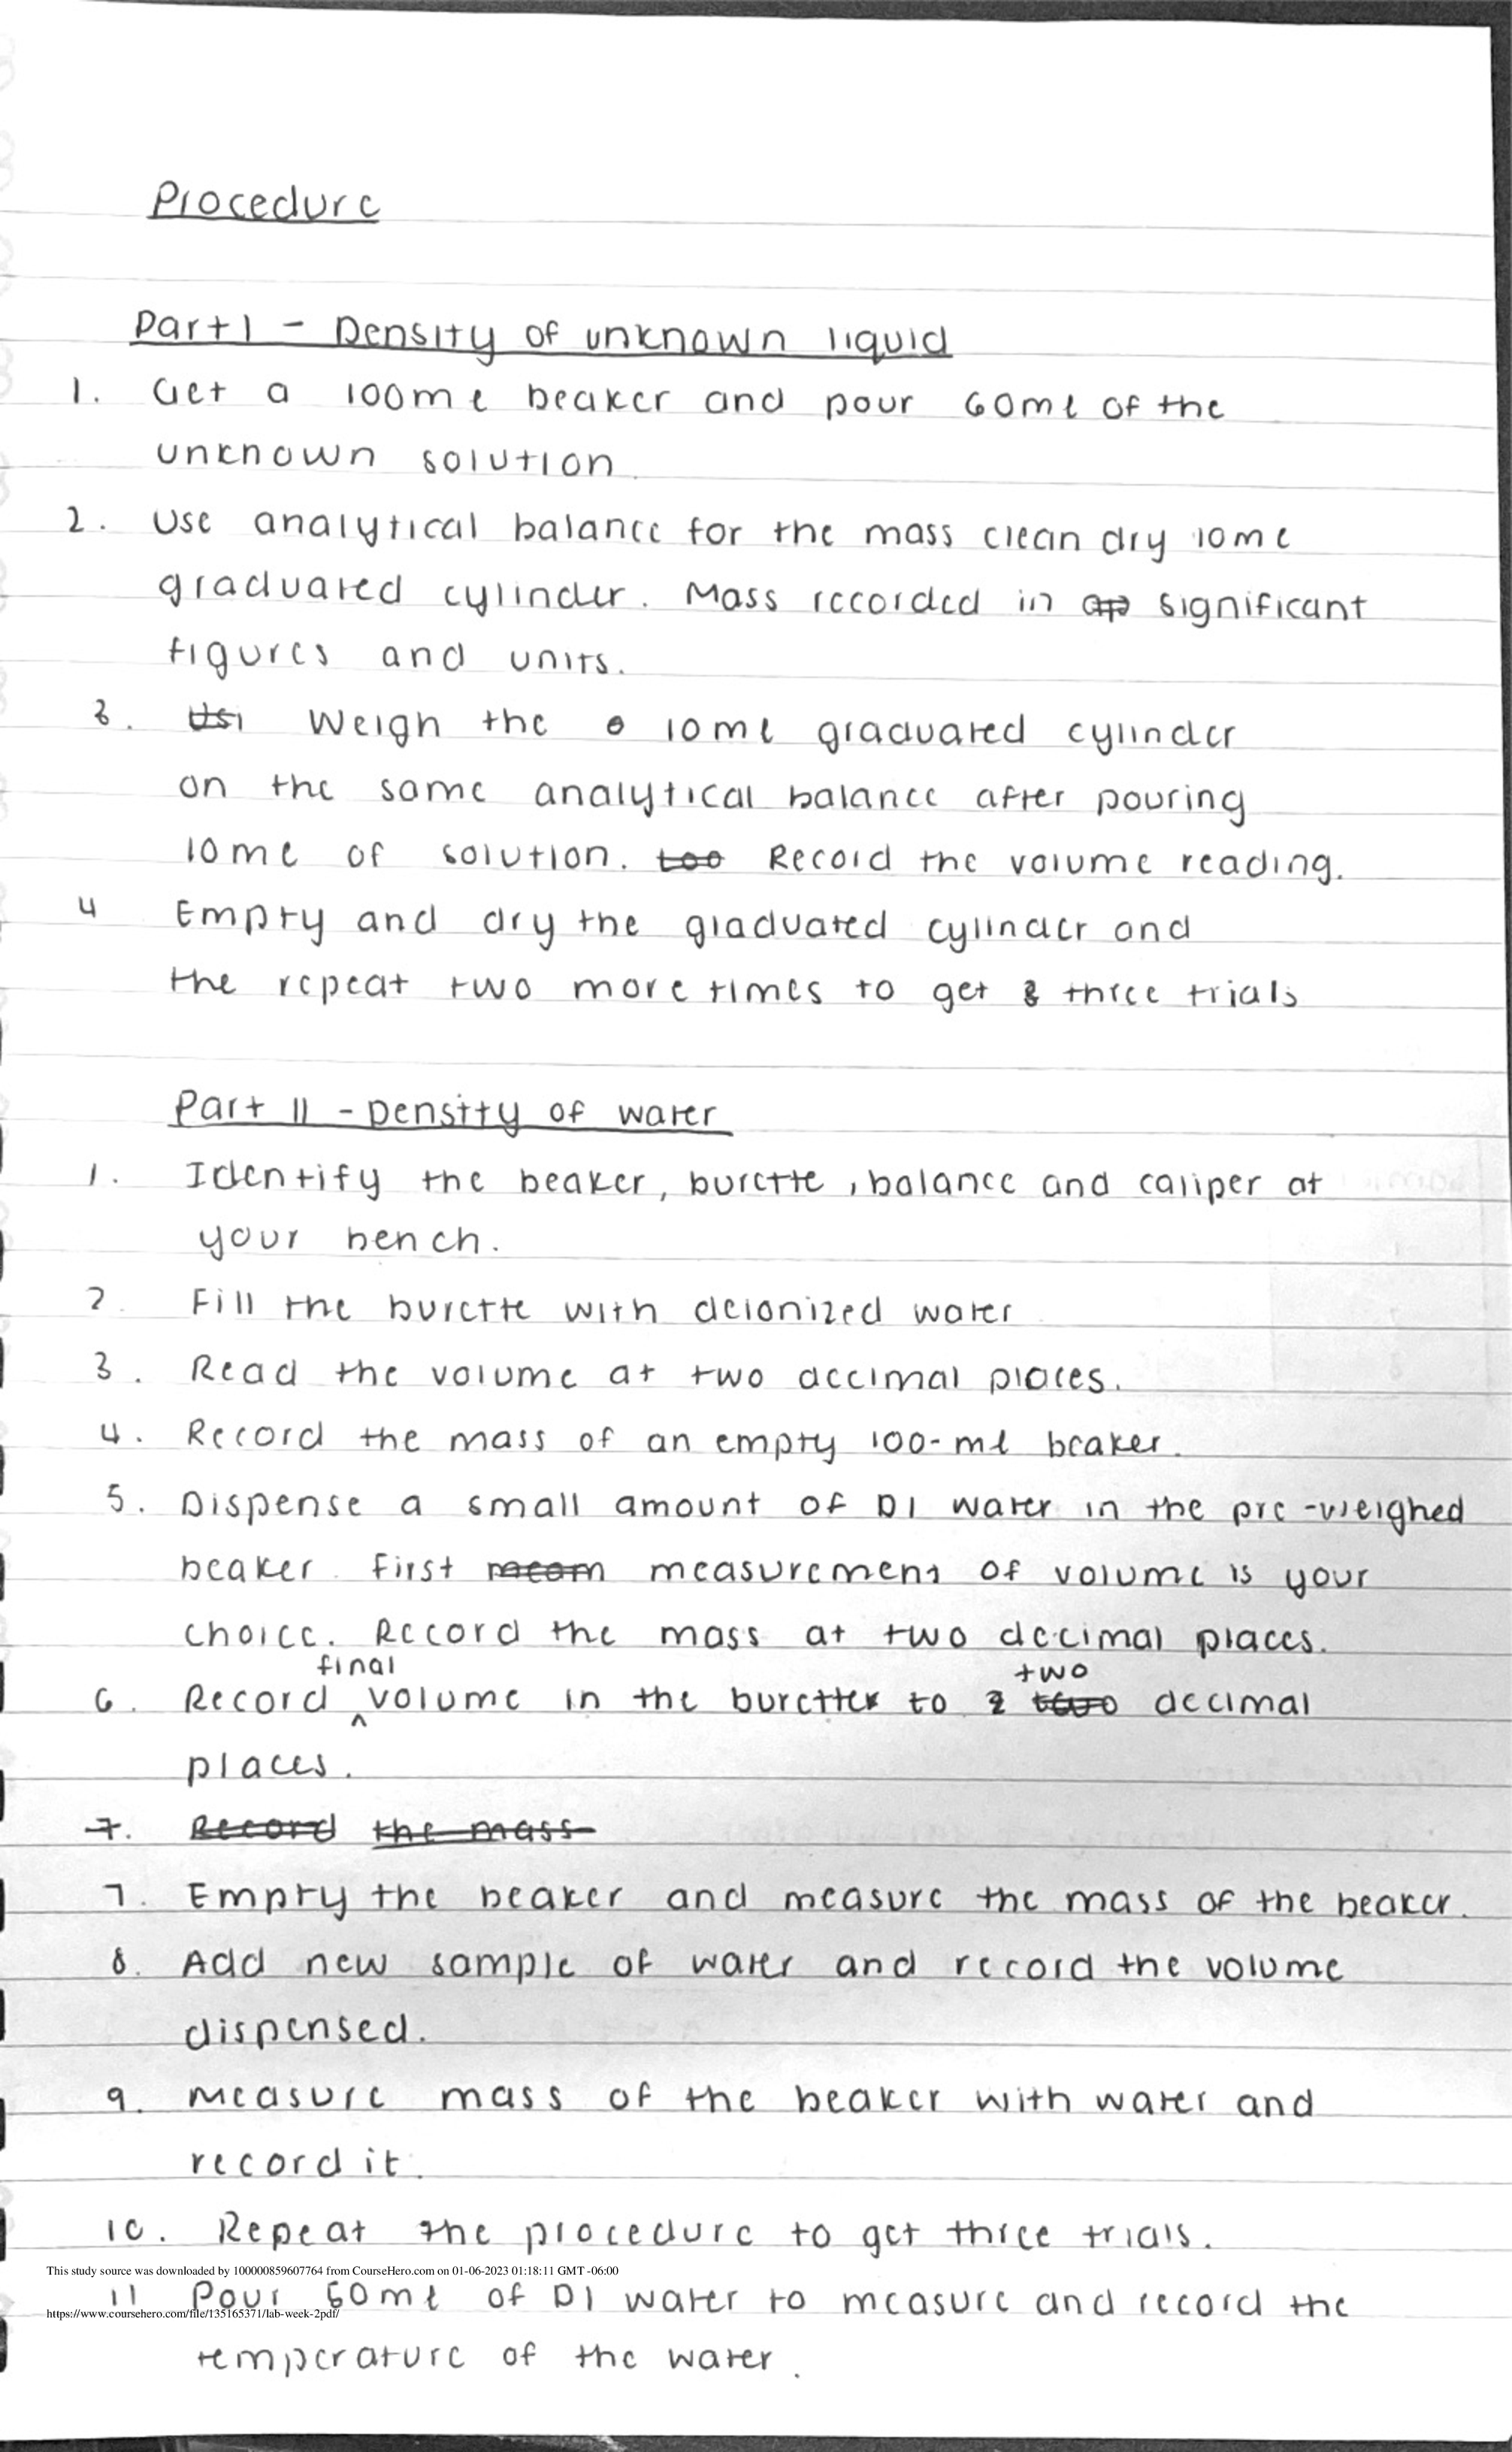 Procedure
Part I - Density of unknown liquid
1. Get a 100ml beaker and pour 60ml of the
unknown solution
2. Use analytical balance for the mass clean dry 10ml
graduated cylinder. Mass recorded in significant
figures and units.
3. Weigh the 10ml graduated cylinder
on the same analytical balance after pouring
10ml of solution. too Record the volume reading.
4 Empty and dry the graduated cylinder and
the repeat two more times to get three trials
Part II - Density of water
1. Identify the beaker, burette, balance and caliper at
your bench.
2. Fill the burette with deionized water
3. Read the volume at two decimal places.
4. Record the mass of an empty 100-ml beaker.
5. Dispense a small amount of DI water in the pre-weighed
beaker. First measurement of volume is your
choice. Record the mass at two decimal places.
final two
6. Record ^ volume in the burette to decimal
places.
7. Record the mass
7. Empty the beaker and measure the mass of the beaker.
8. Add new sample of water and record the volume
dispensed.
9. Measure mass of the beaker with water and
record it.
10. Repeat the procedure to get three trials.
This study source was downloaded by 100000859607764 from CourseHero.com on 01-06-2023 01:18:11 GMT -06:00
11 Pour 50ml of DI water to measure and record the
https://www.coursehero.com/file/135165371/lab-week-2pdf/
temperature of the water.